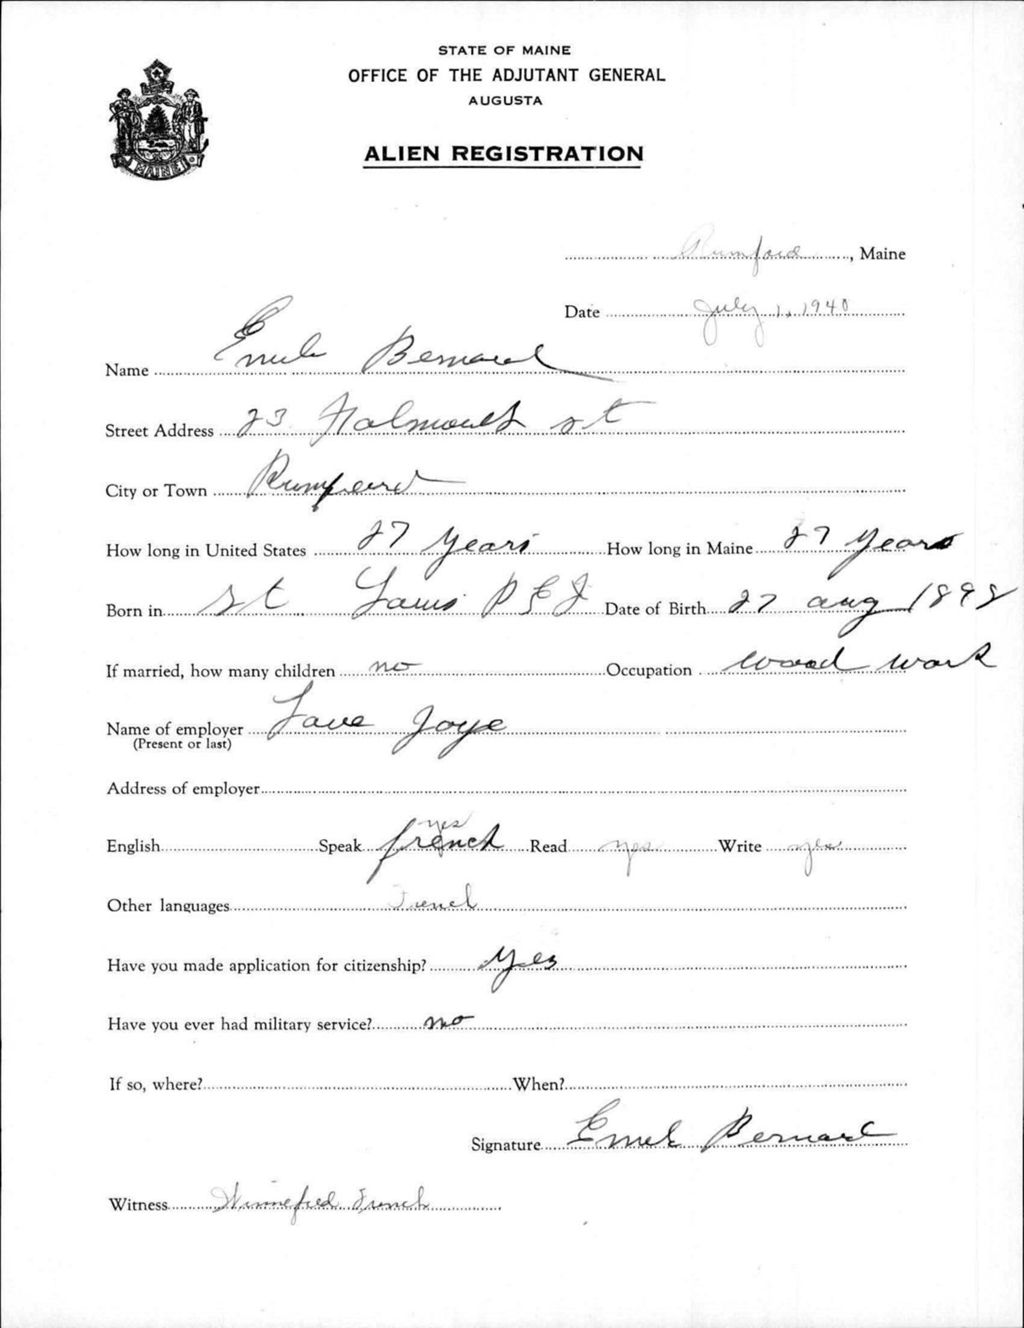 STATE OF MAINE
OFFICE OF THE ADJUTANT GENERAL
AUGUSTA
ALIEN REGISTRATION
MAINE
Rumford, Maine
Date July 1, 1940
Name Emile Bernard
Street Address 23 Falmouth st
City or Town Rumford
How long in United States 27 years How long in Maine 27 years
Born in st Louis P E I Date of Birth 27 aug
If married, how many children no Occupation wood work
Name of employer Joye
(Present or last)
Address of employer
yes
English Speak french Read yes Write yes
Other languages French
Have you made application for citizenship? yes
Have you ever had military service? no
If so, where? When?
Signature Emile Bernard
Witness Winnefred French